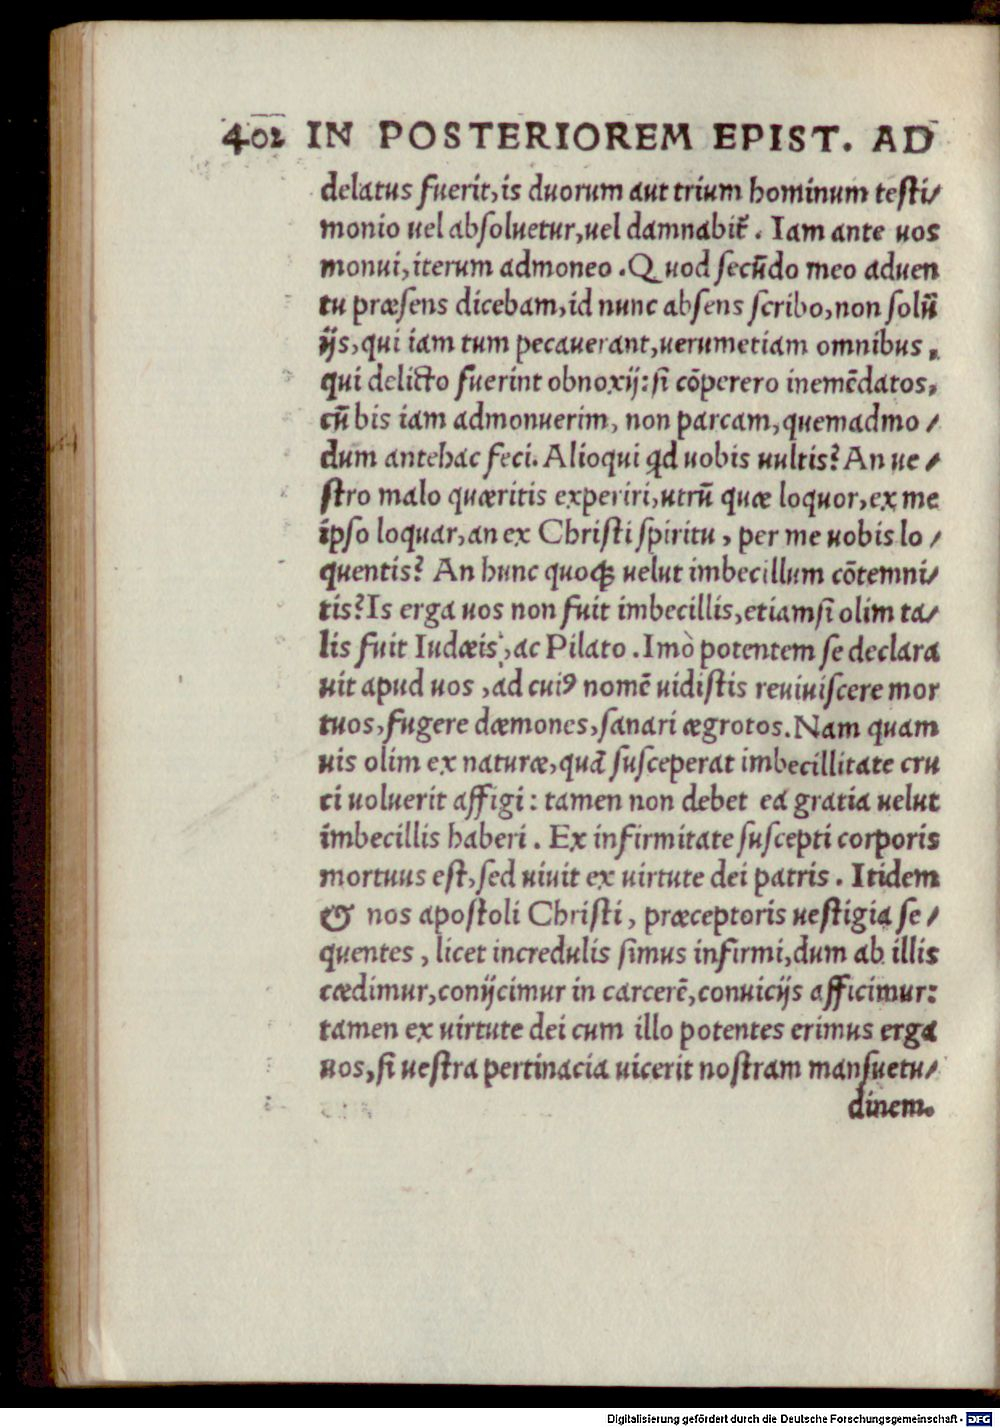 402 IN POSTERIOREM EPIST. AD
delatus fuerit, is duorum aut trium hominum testi/
monio uel absoluetur, uel damnabit̃. Iam ante uos
monui, iterum admoneo. Quod secũdo meo aduen
tu præsens dicebam, id nunc absens scribo, non solũ
ijs, qui iam tum pecauerant, uerumetiam omnibus,
qui delicto fuerint obnoxij: si cõperero inemẽdatos,
cũ bis iam admonuerim, non parcam, quemadmo/
dum antehac feci. Alioqui qd uobis uultis? An ue/
stro malo quæritis experiri, utrũ quæ loquor, ex me
ipso loquar, an ex Christi spiritu, per me uobis lo/
quentis? An hunc quoqȝ uelut imbecillum cõtemni/
tis? Is erga uos non fuit imbecillis, etiamsi olim ta/
lis fuit Iudæis, ac Pilato. Imò potentem se declara
uit apud uos, ad cuiꝰ nomẽ uidistis reuiuiscere mor
tuos, fugere dæmones, sanari ægrotos. Nam quam
uis olim ex naturæ, quã susceperat imbecillitate cru
ci uoluerit affigi: tamen non debet ea gratia uelut
imbecillis haberi. Ex infirmitate suscepti corporis
mortuus est, sed uiuit ex uirtute dei patris. Itidem
& nos apostoli Christi, præceptoris uestigia se/
quentes, licet incredulis simus infirmi, dum ab illis
cædimur, conijcimur in carcerẽ, conuicijs afficimur:
tamen ex uirtute dei cum illo potentes erimus erga
uos, si uestra pertinacia uicerit nostram mansuetu/
dinem.
Digitalisierung gefördert durch die Deutsche Forschungsgemeinschaft - DFG